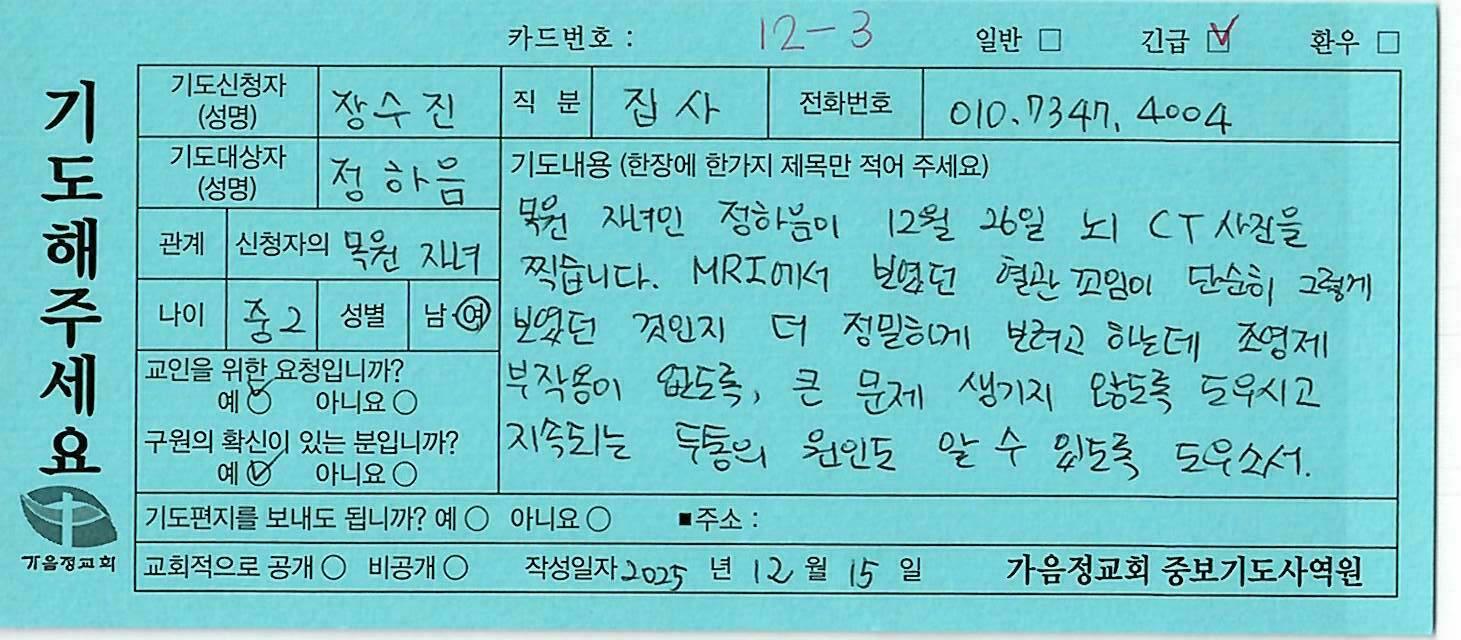 카드번호 : 12-3 일반 □ 긴급 ☑ 환우 □
기도해주세요
기도신청자 (성명) 장수진 직 분 집사 전화번호 010.7347.4004
기도대상자 (성명) 정하음
관계 신청자의 목원 자녀
나이 중2 성별 남 여
교인을 위한 요청입니까?
예 ○ 아니요 ○
구원의 확신이 있는 분입니까?
예 ○ 아니요 ○
기도내용 (한장에 한가지 제목만 적어 주세요)
목원 자녀인 정하음이 12월 26일 뇌 CT 사진을
찍습니다. MRI에서 보였던 혈관 꼬임이 단순히 그렇게
보였던 것인지 더 정밀하게 보려고 하는데 조영제
부작용이 없도록, 큰 문제 생기지 않도록 도우시고
지속되는 두통의 원인도 알 수 있도록 도우소서.
기도편지를 보내도 됩니까? 예 ○ 아니요 ○ ■주소 :
교회적으로 공개 ○ 비공개 ○ 작성일자 2025 년 12 월 15 일 가음정교회 중보기도사역원
가음정교회